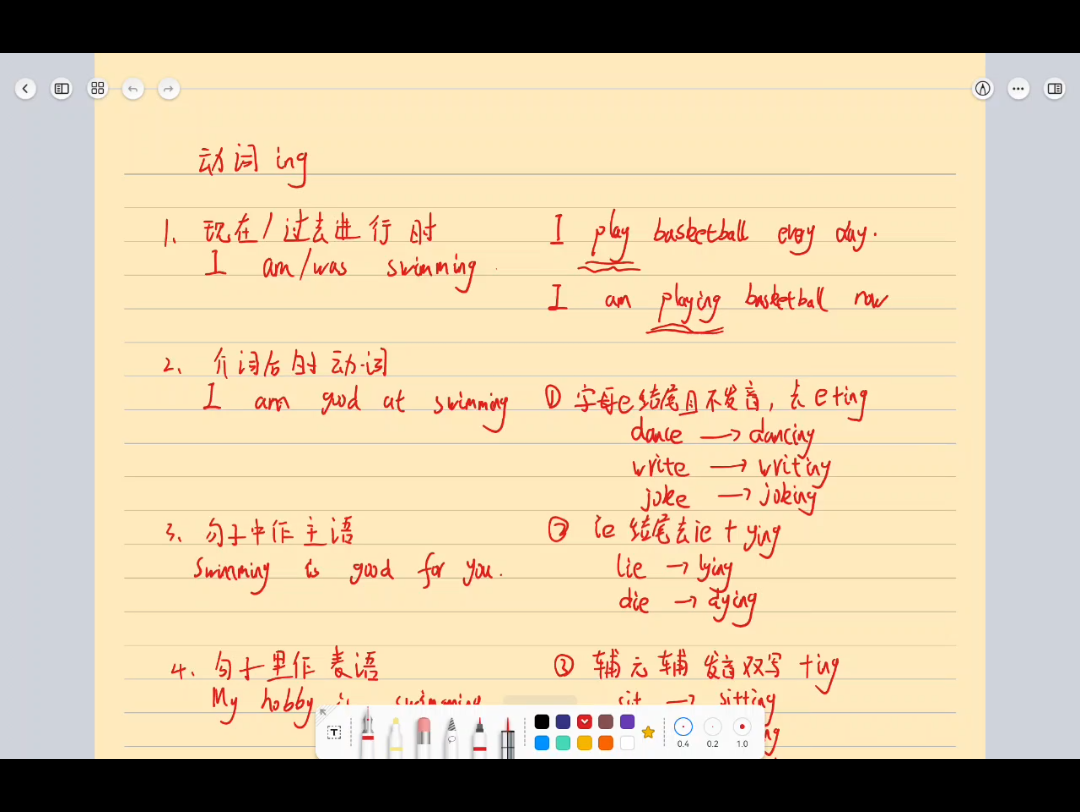 动词 ing
1、现在/过去进行时
I am/was swimming.
I play basketball every day.
I am playing basketball now
2、介词后的动词
I am good at swimming
① 字母e结尾且不发音，去e+ing
dance → dancing
write → writing
joke → joking
3、句子中作主语
Swimming is good for you.
② ie 结尾去ie + ying
lie → lying
die → dying
4、句子里作表语
My hobby is swimming
③ 辅元辅 发音双写 +ing
sit → sitting
T
0.4 0.2 1.0